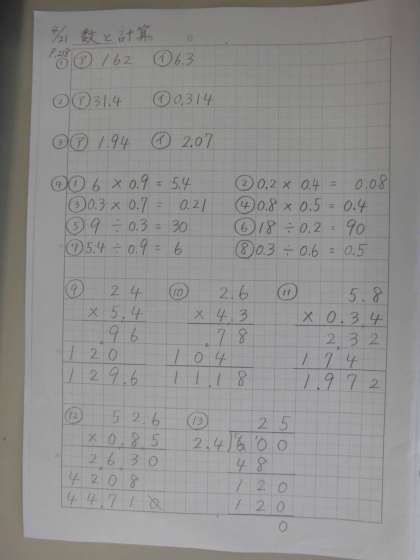 4/21 数と計算
P.218
① ㋐ 162 ㋑ 6.3
② ㋐ 31.4 ㋑ 0.314
③ ㋐ 1.94 ㋑ 2.07
④ ① 6 × 0.9 = 5.4 ② 0.2 × 0.4 = 0.08
③ 0.3 × 0.7 = 0.21 ④ 0.8 × 0.5 = 0.4
⑤ 9 ÷ 0.3 = 30 ⑥ 18 ÷ 0.2 = 90
⑦ 5.4 ÷ 0.9 = 6 ⑧ 0.3 ÷ 0.6 = 0.5
⑨ 24 ⑩ 2.6 ⑪ 5.8
× 5.4 × 4.3 × 0.34
.96 .78 2.32
120 104 174
129.6 11.18 1.972
⑫ 52.6 ⑬ 25
× 0.85 2.4)6.00
2.630 48
4208 120
44.710 120
0